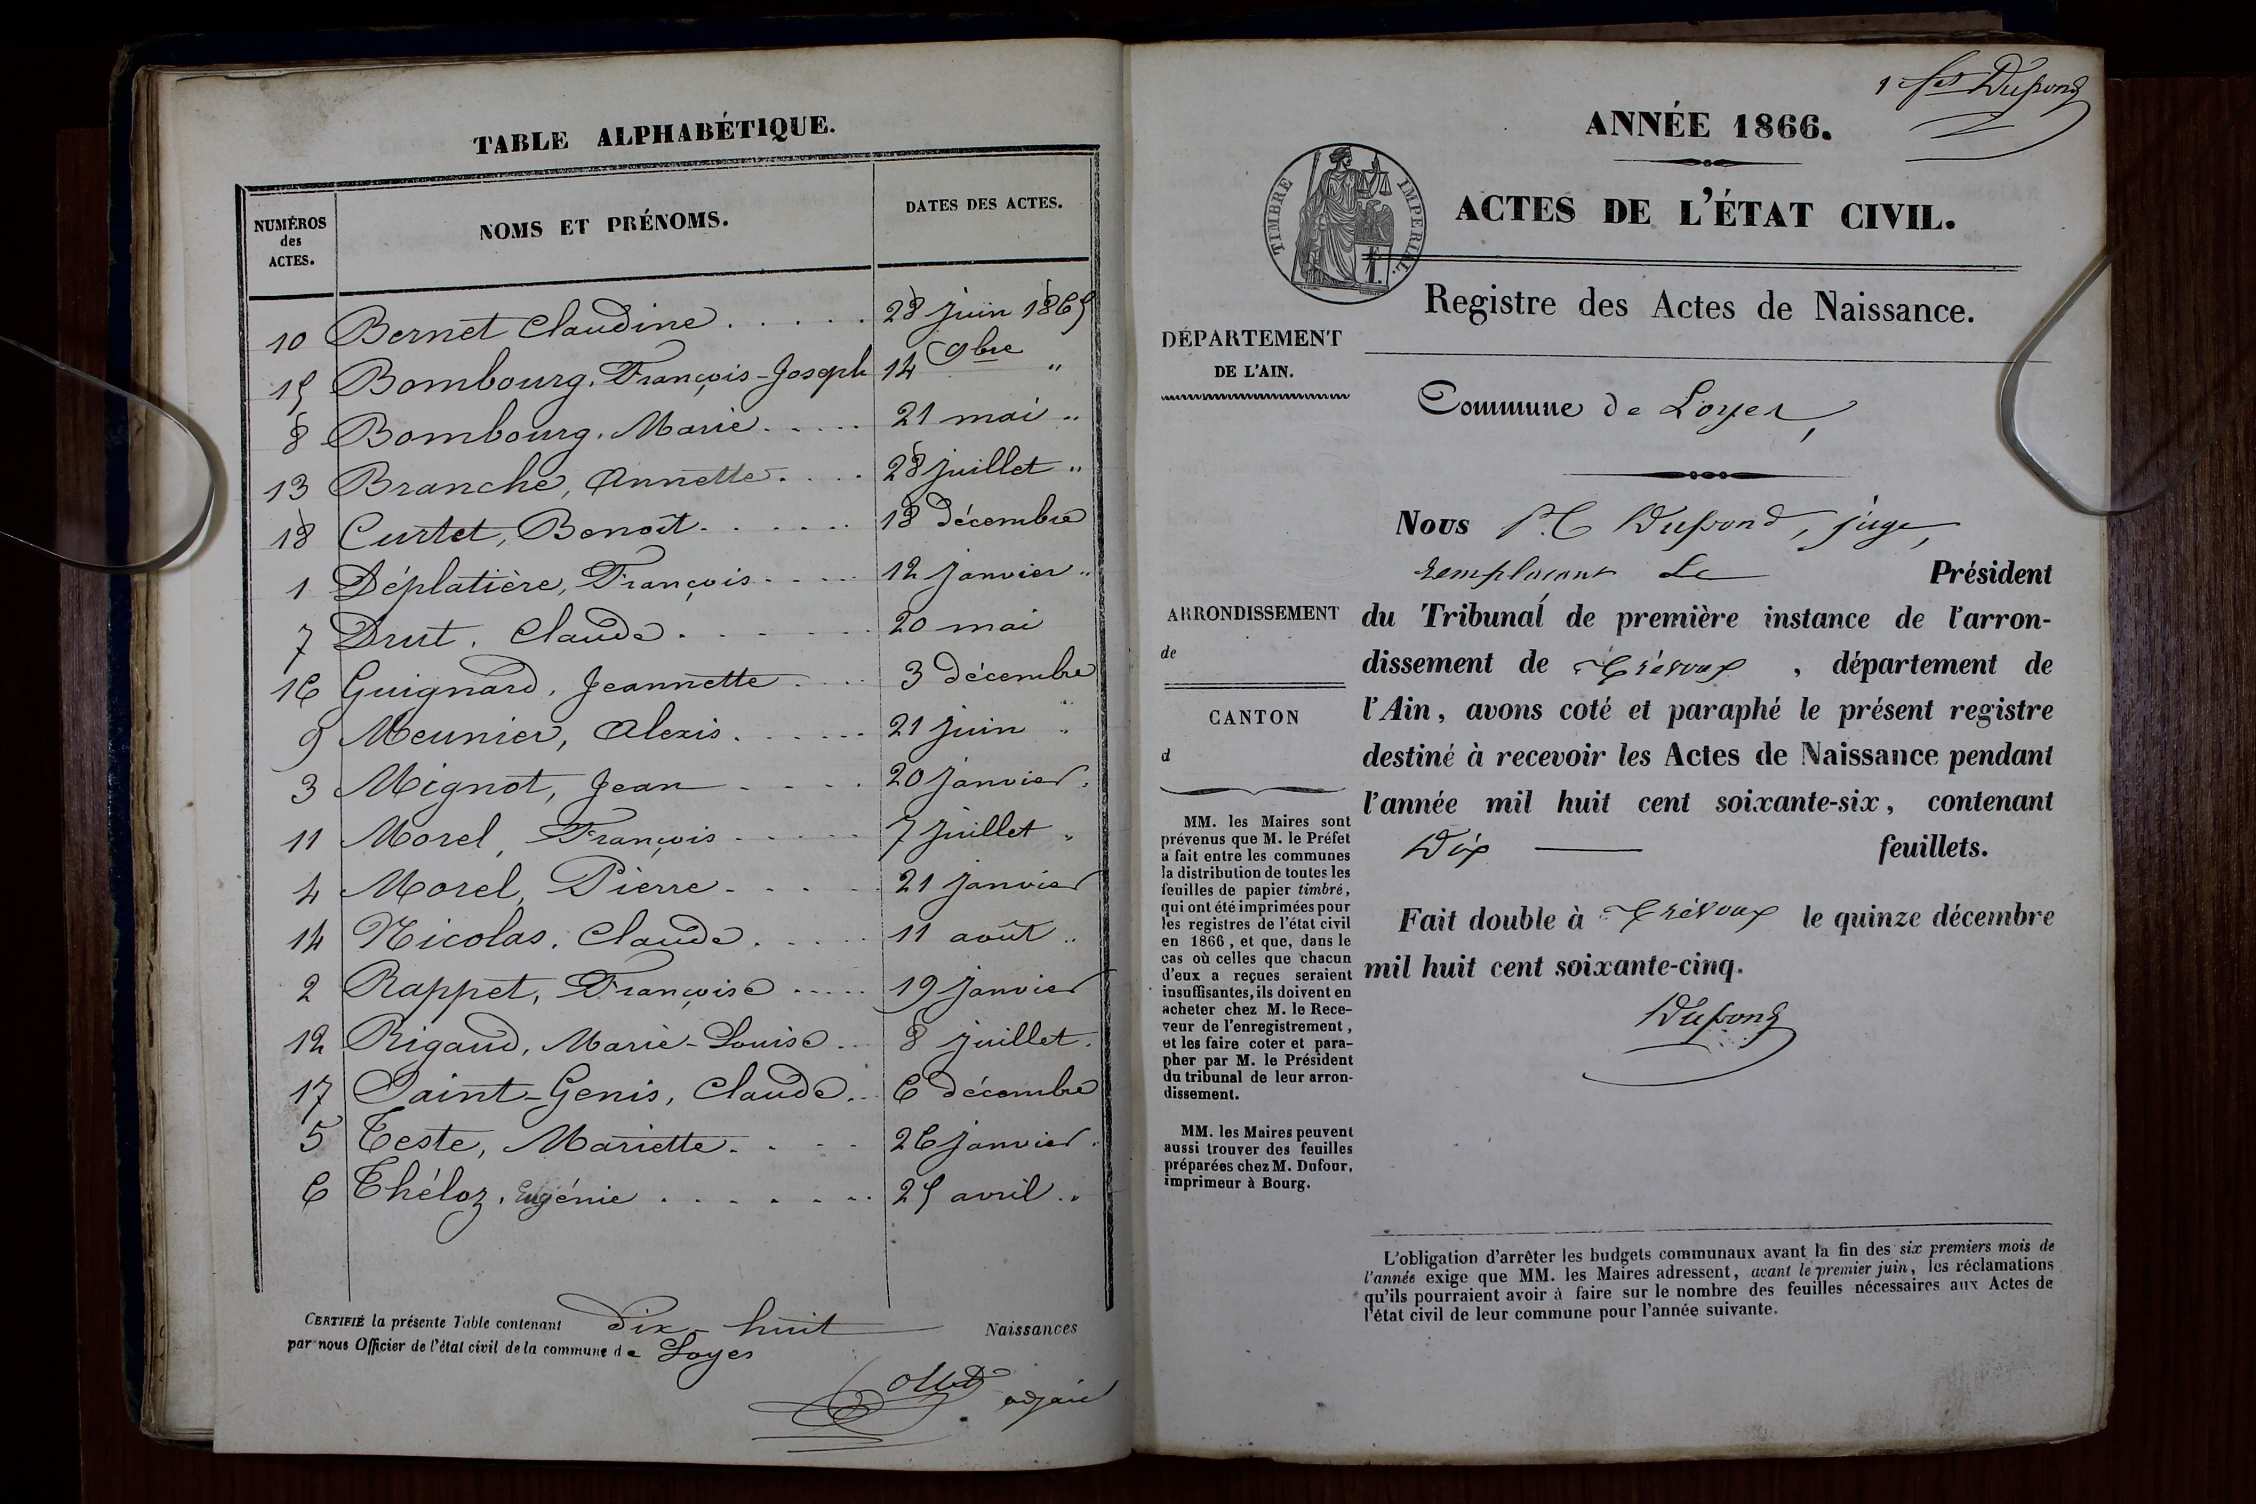 TABLE ALPHABÉTIQUE.
NUMÉROS des ACTES. NOMS ET PRÉNOMS. DATES DES ACTES.
10 Bernet Claudine . . . . . 28 juin 1865
15 Bombourg, François-Joseph 14 9bre "
8 Bombourg, Marie . . . . . 21 mai "
13 Branche, Annette . . . . 28 juillet "
18 Curtet, Benoît . . . . . . 18 décembre
1 Déplatière, François . . . . 12 janvier "
7 Drut, Claude . . . . . . 20 mai
16 Guignard, Jeannette . . . 3 décembre
9 Meunier, Alexis . . . . . . 21 juin "
3 Mignot, Jean . . . . 20 janvier "
11 Morel, François . . . . . 7 juillet "
4 Morel, Pierre . . . . . 21 janvier
14 Nicolas, Claude . . . . . 11 août "
2 Rappet, Françoise . . . . . 19 janvier
12 Rigaud, Marie-Louise . . 8 juillet "
17 Saint-Genis, Claude . . 6 décembre
5 Teste, Mariette . . . . 26 janvier "
6 Théloz, Eugénie . . . . . . . 25 avril "
CERTIFIÉ la présente Table contenant dix-huit Naissances
par nous Officier de l'état civil de la commune de Loyes
adjoint
1er Dupond
ANNÉE 1866.
TIMBRE IMPÉRIAL.
ACTES DE L'ÉTAT CIVIL.
Registre des Actes de Naissance.
DÉPARTEMENT
DE L'AIN.
Commune de Loyes,
Nous Dupond, juge,
remplaçant Le Président
du Tribunal de première instance de l'arron-
dissement de Trévoux, département de
l'Ain, avons coté et paraphé le présent registre
destiné à recevoir les Actes de Naissance pendant
l'année mil huit cent soixante-six, contenant
Dix feuillets.
Fait double à Trévoux le quinze décembre
mil huit cent soixante-cinq.
Dupond
ARRONDISSEMENT
de
CANTON
d
MM. les Maires sont
prévenus que M. le Préfet
a fait entre les communes
la distribution de toutes les
feuilles de papier timbré,
qui ont été imprimées pour
les registres de l'état civil
en 1866, et que, dans le
cas où celles que chacun
d'eux a reçues seraient
insuffisantes, ils doivent en
acheter chez M. le Rece-
veur de l'enregistrement,
et les faire coter et para-
pher par M. le Président
du tribunal de leur arron-
dissement.
MM. les Maires peuvent
aussi trouver des feuilles
préparées chez M. Dufour,
imprimeur à Bourg.
L'obligation d'arrêter les budgets communaux avant la fin des six premiers mois de
l'année exige que MM. les Maires adressent, avant le premier juin, les réclamations
qu'ils pourraient avoir à faire sur le nombre des feuilles nécessaires aux Actes de
l'état civil de leur commune pour l'année suivante.